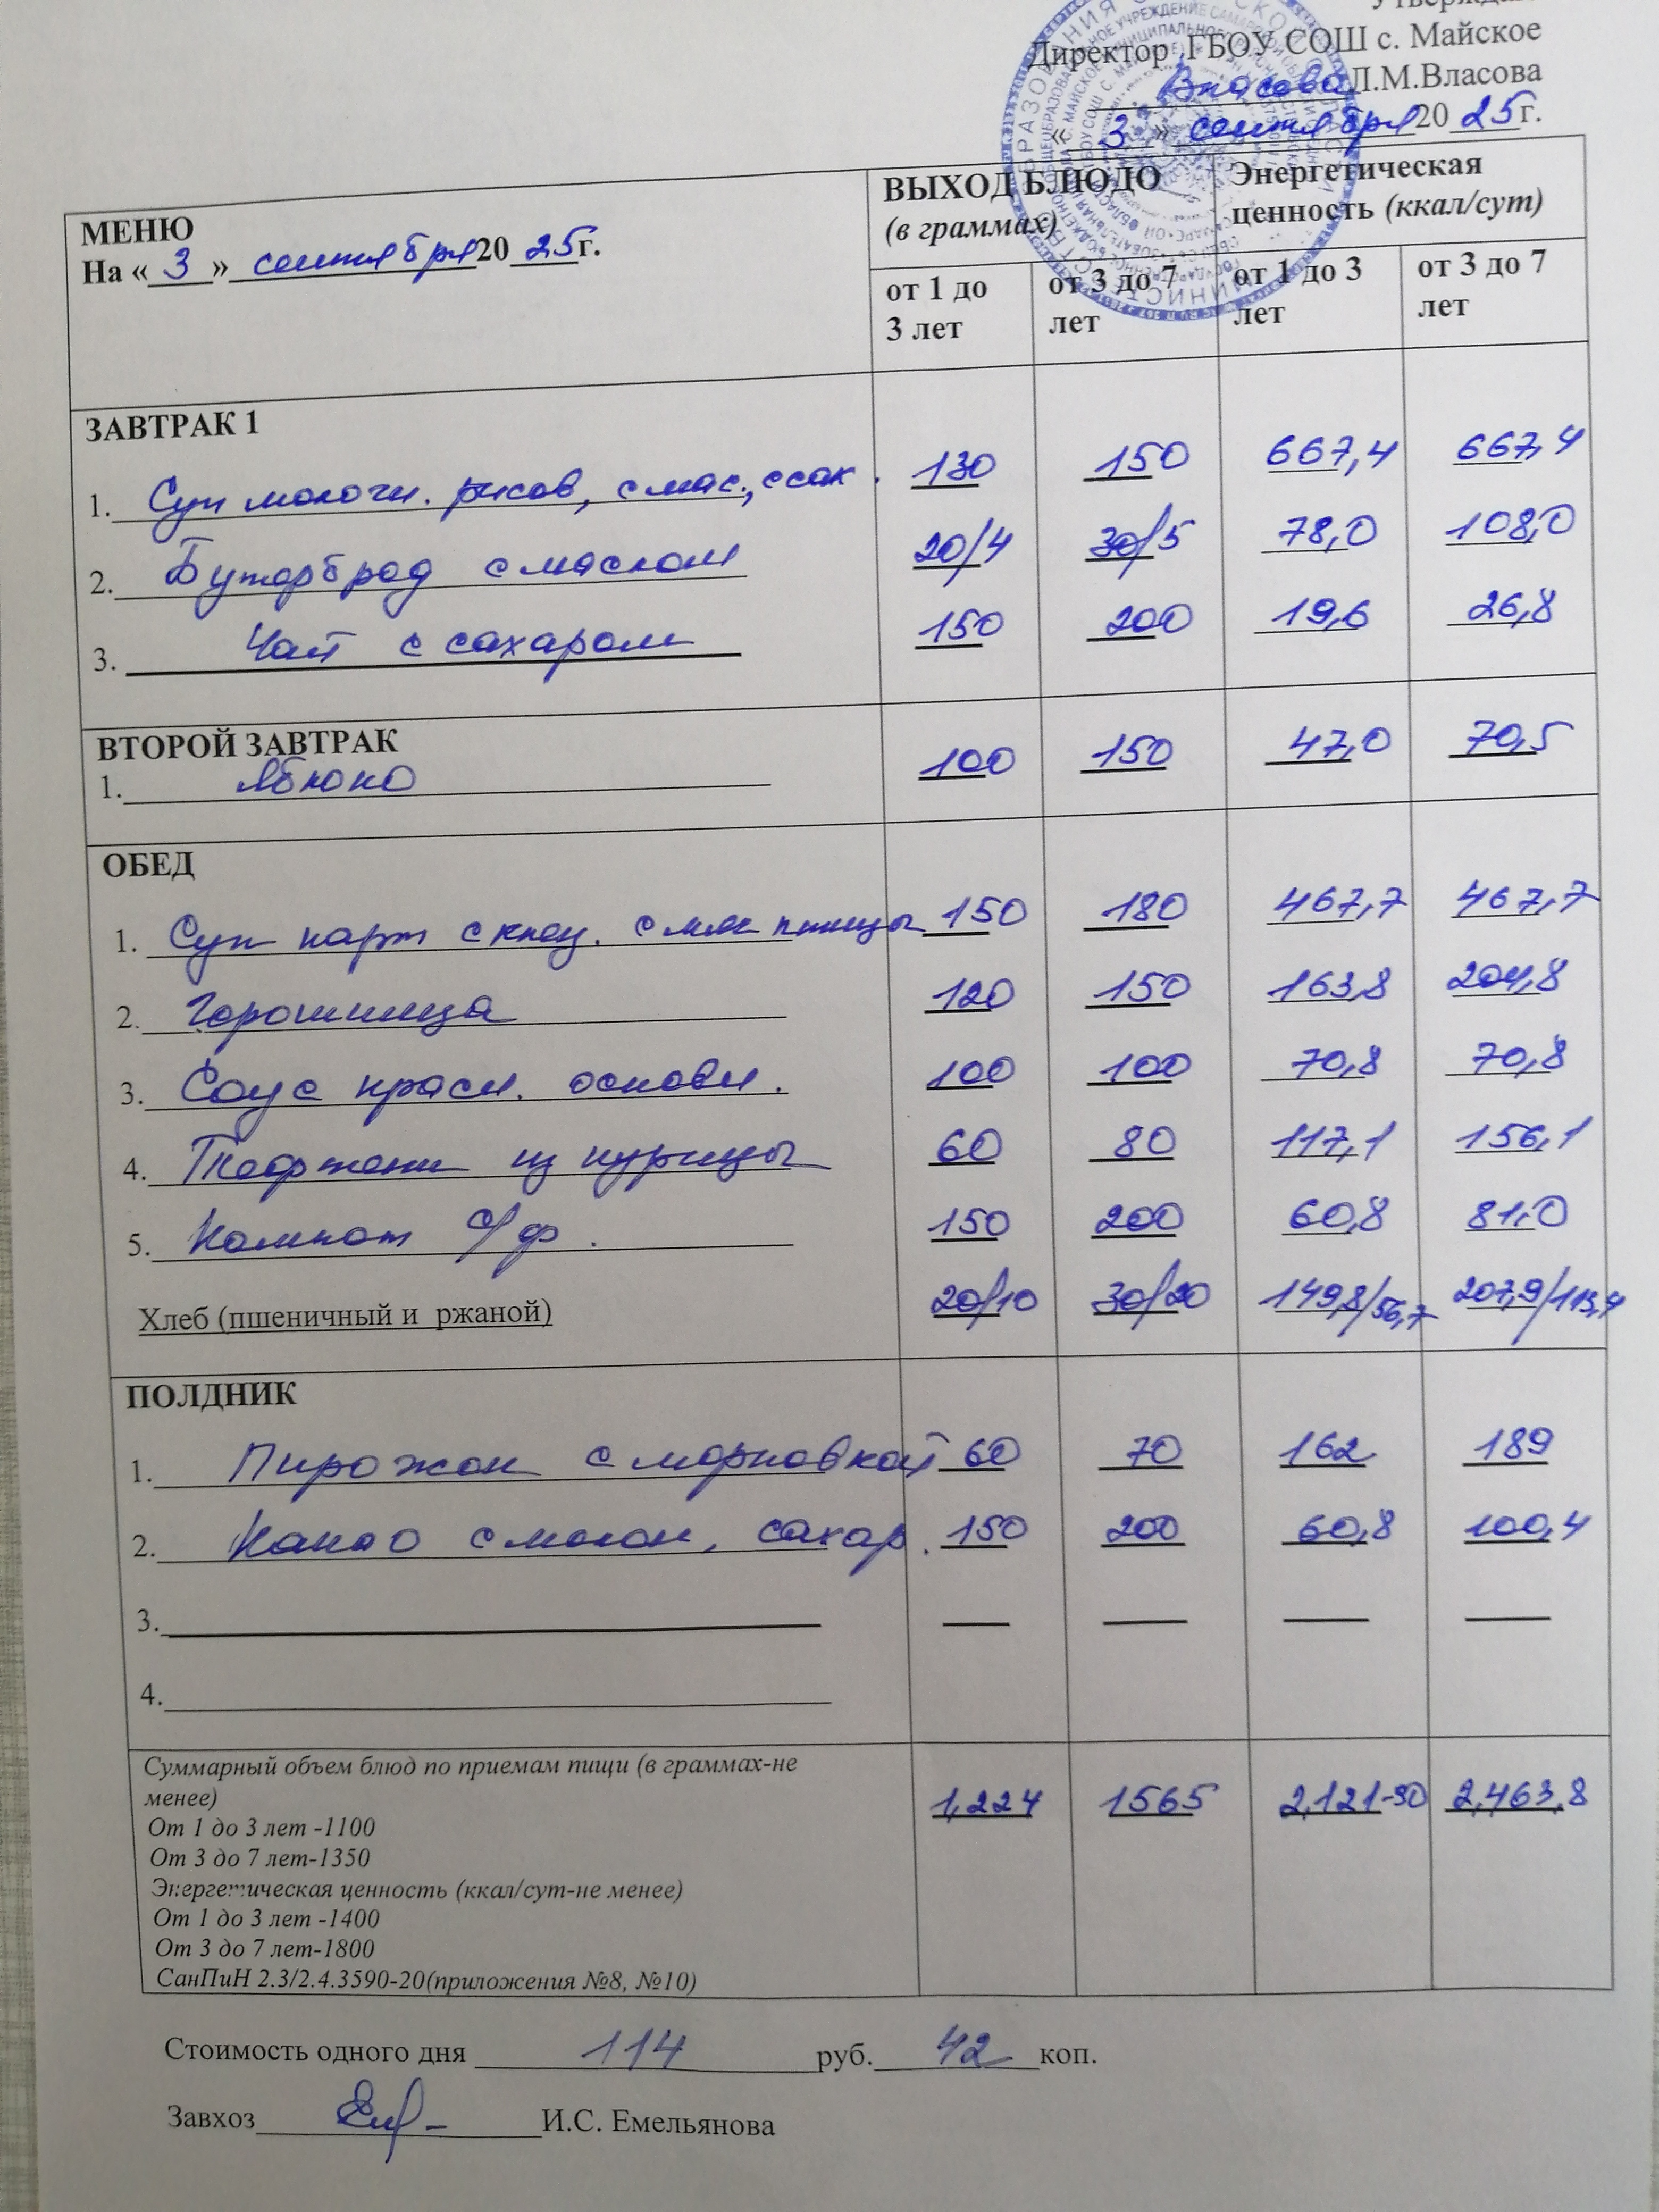 Директор ГБОУ СОШ с. Майское
Власова Л.М.Власова
« 3 » сентября 20 25 г.
МЕНЮ
На « 3 » сентября 20 25 г.
ВЫХОД БЛЮДО (в граммах)
Энергетическая ценность (ккал/сут)
от 1 до 3 лет от 3 до 7 лет от 1 до 3 лет от 3 до 7 лет
ЗАВТРАК 1
1. Суп молочн. рисов, с мас., с сах. 130 150 667,4 667,4
2. Бутерброд с маслом 20/4 30/5 78,0 108,0
3. Чай с сахаром 150 200 19,6 26,8
ВТОРОЙ ЗАВТРАК
1. Яблоко 100 150 47,0 70,5
ОБЕД
1. Суп карт с клец. с мяс птицы 150 180 467,7 467,7
2. Горошница 120 150 163,8 204,8
3. Соус красн. основн. 100 100 70,8 70,8
4. из курицы 60 80 117,1 156,1
5. Компот с/ф. 150 200 60,8 81,0
Хлеб (пшеничный и ржаной) 20/10 30/20 149,8/56,7 207,9/113,4
ПОЛДНИК
1. Пирожок с морковкой 60 70 162 189
2. Какао с молок, сахар. 150 200 60,8 100,4
3.
4.
Суммарный объем блюд по приемам пищи (в граммах-не
менее) 1,224 1565 2,121-90 2,463,8
От 1 до 3 лет -1100
От 3 до 7 лет-1350
Энергетическая ценность (ккал/сут-не менее)
От 1 до 3 лет -1400
От 3 до 7 лет-1800
СанПиН 2.3/2.4.3590-20(приложения №8, №10)
Стоимость одного дня 114 руб. 42 коп.
Завхоз И.С. Емельянова